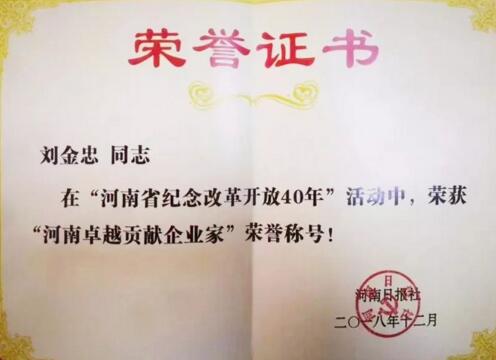 荣誉证书
刘金忠 同志
在“河南省纪念改革开放40年”活动中，荣获
“河南卓越贡献企业家”荣誉称号！
河南日报社
二〇一八年十二月